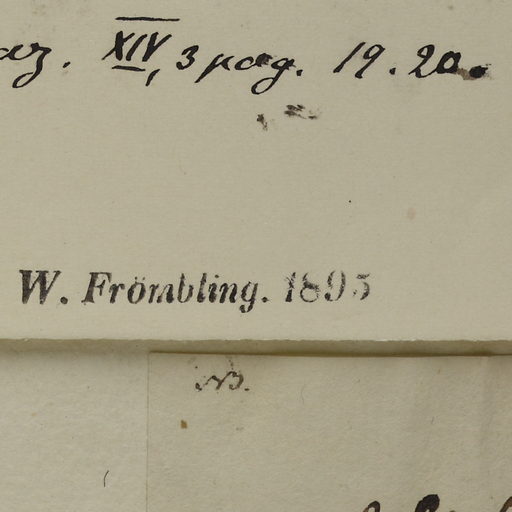 az. XIV, 3 pag. 19. 20.
W. Frömbling. 1895
NB.